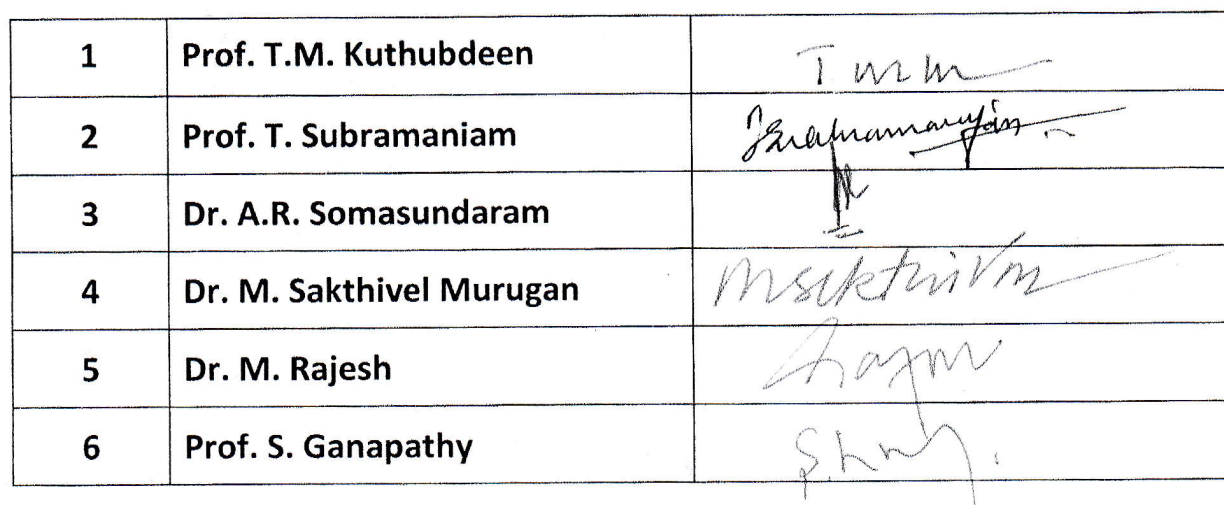 1 Prof. T.M. Kuthubdeen
2 Prof. T. Subramaniam
3 Dr. A.R. Somasundaram
4 Dr. M. Sakthivel Murugan
5 Dr. M. Rajesh
6 Prof. S. Ganapathy